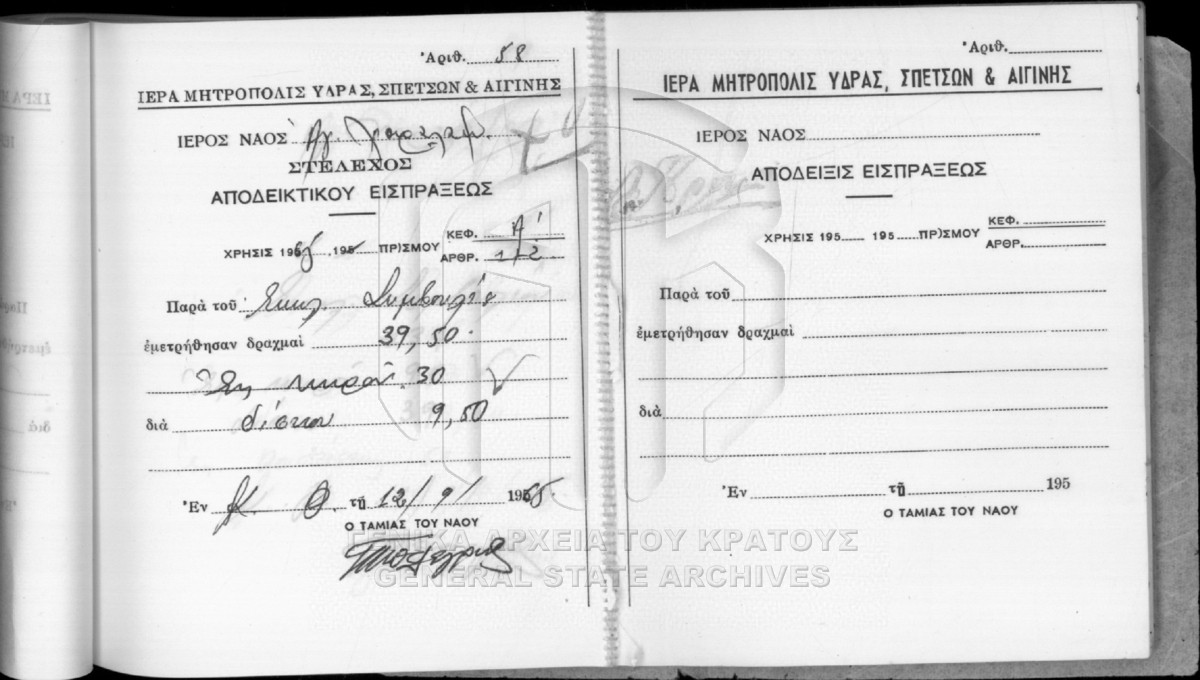 Ἀριθ. 58
ΙΕΡΑ ΜΗΤΡΟΠΟΛΙΣ ΥΔΡΑΣ, ΣΠΕΤΣΩΝ & ΑΙΓΙΝΗΣ
ΙΕΡΟΣ ΝΑΟΣ Αγ.
ΣΤΕΛΕΧΟΣ
ΑΠΟΔΕΙΚΤΙΚΟΥ ΕΙΣΠΡΑΞΕΩΣ
ΧΡΗΣΙΣ 195 195 ΠΡ)ΣΜΟΥ
ΚΕΦ. Α'
ΑΡΘΡ. 1/2
Παρὰ τοῦ Εκκλ. Συμβουλίου
ἐμετρήθησαν δραχμαὶ 39,50
30
διὰ δίσκου 9,50
Ἐν τῇ 12/9/
Ο ΤΑΜΙΑΣ ΤΟΥ ΝΑΟΥ
Ἀριθ.
ΙΕΡΑ ΜΗΤΡΟΠΟΛΙΣ ΥΔΡΑΣ, ΣΠΕΤΣΩΝ & ΑΙΓΙΝΗΣ
ΙΕΡΟΣ ΝΑΟΣ
ΑΠΟΔΕΙΞΙΣ ΕΙΣΠΡΑΞΕΩΣ
ΧΡΗΣΙΣ 195 195 ΠΡ)ΣΜΟΥ
ΚΕΦ.
ΑΡΘΡ.
Παρὰ τοῦ
ἐμετρήθησαν δραχμαὶ
διὰ
Ἐν τῇ 195
Ο ΤΑΜΙΑΣ ΤΟΥ ΝΑΟΥ
ΓΕΝΙΚΑ ΑΡΧΕΙΑ ΤΟΥ ΚΡΑΤΟΥΣ
GENERAL STATE ARCHIVES